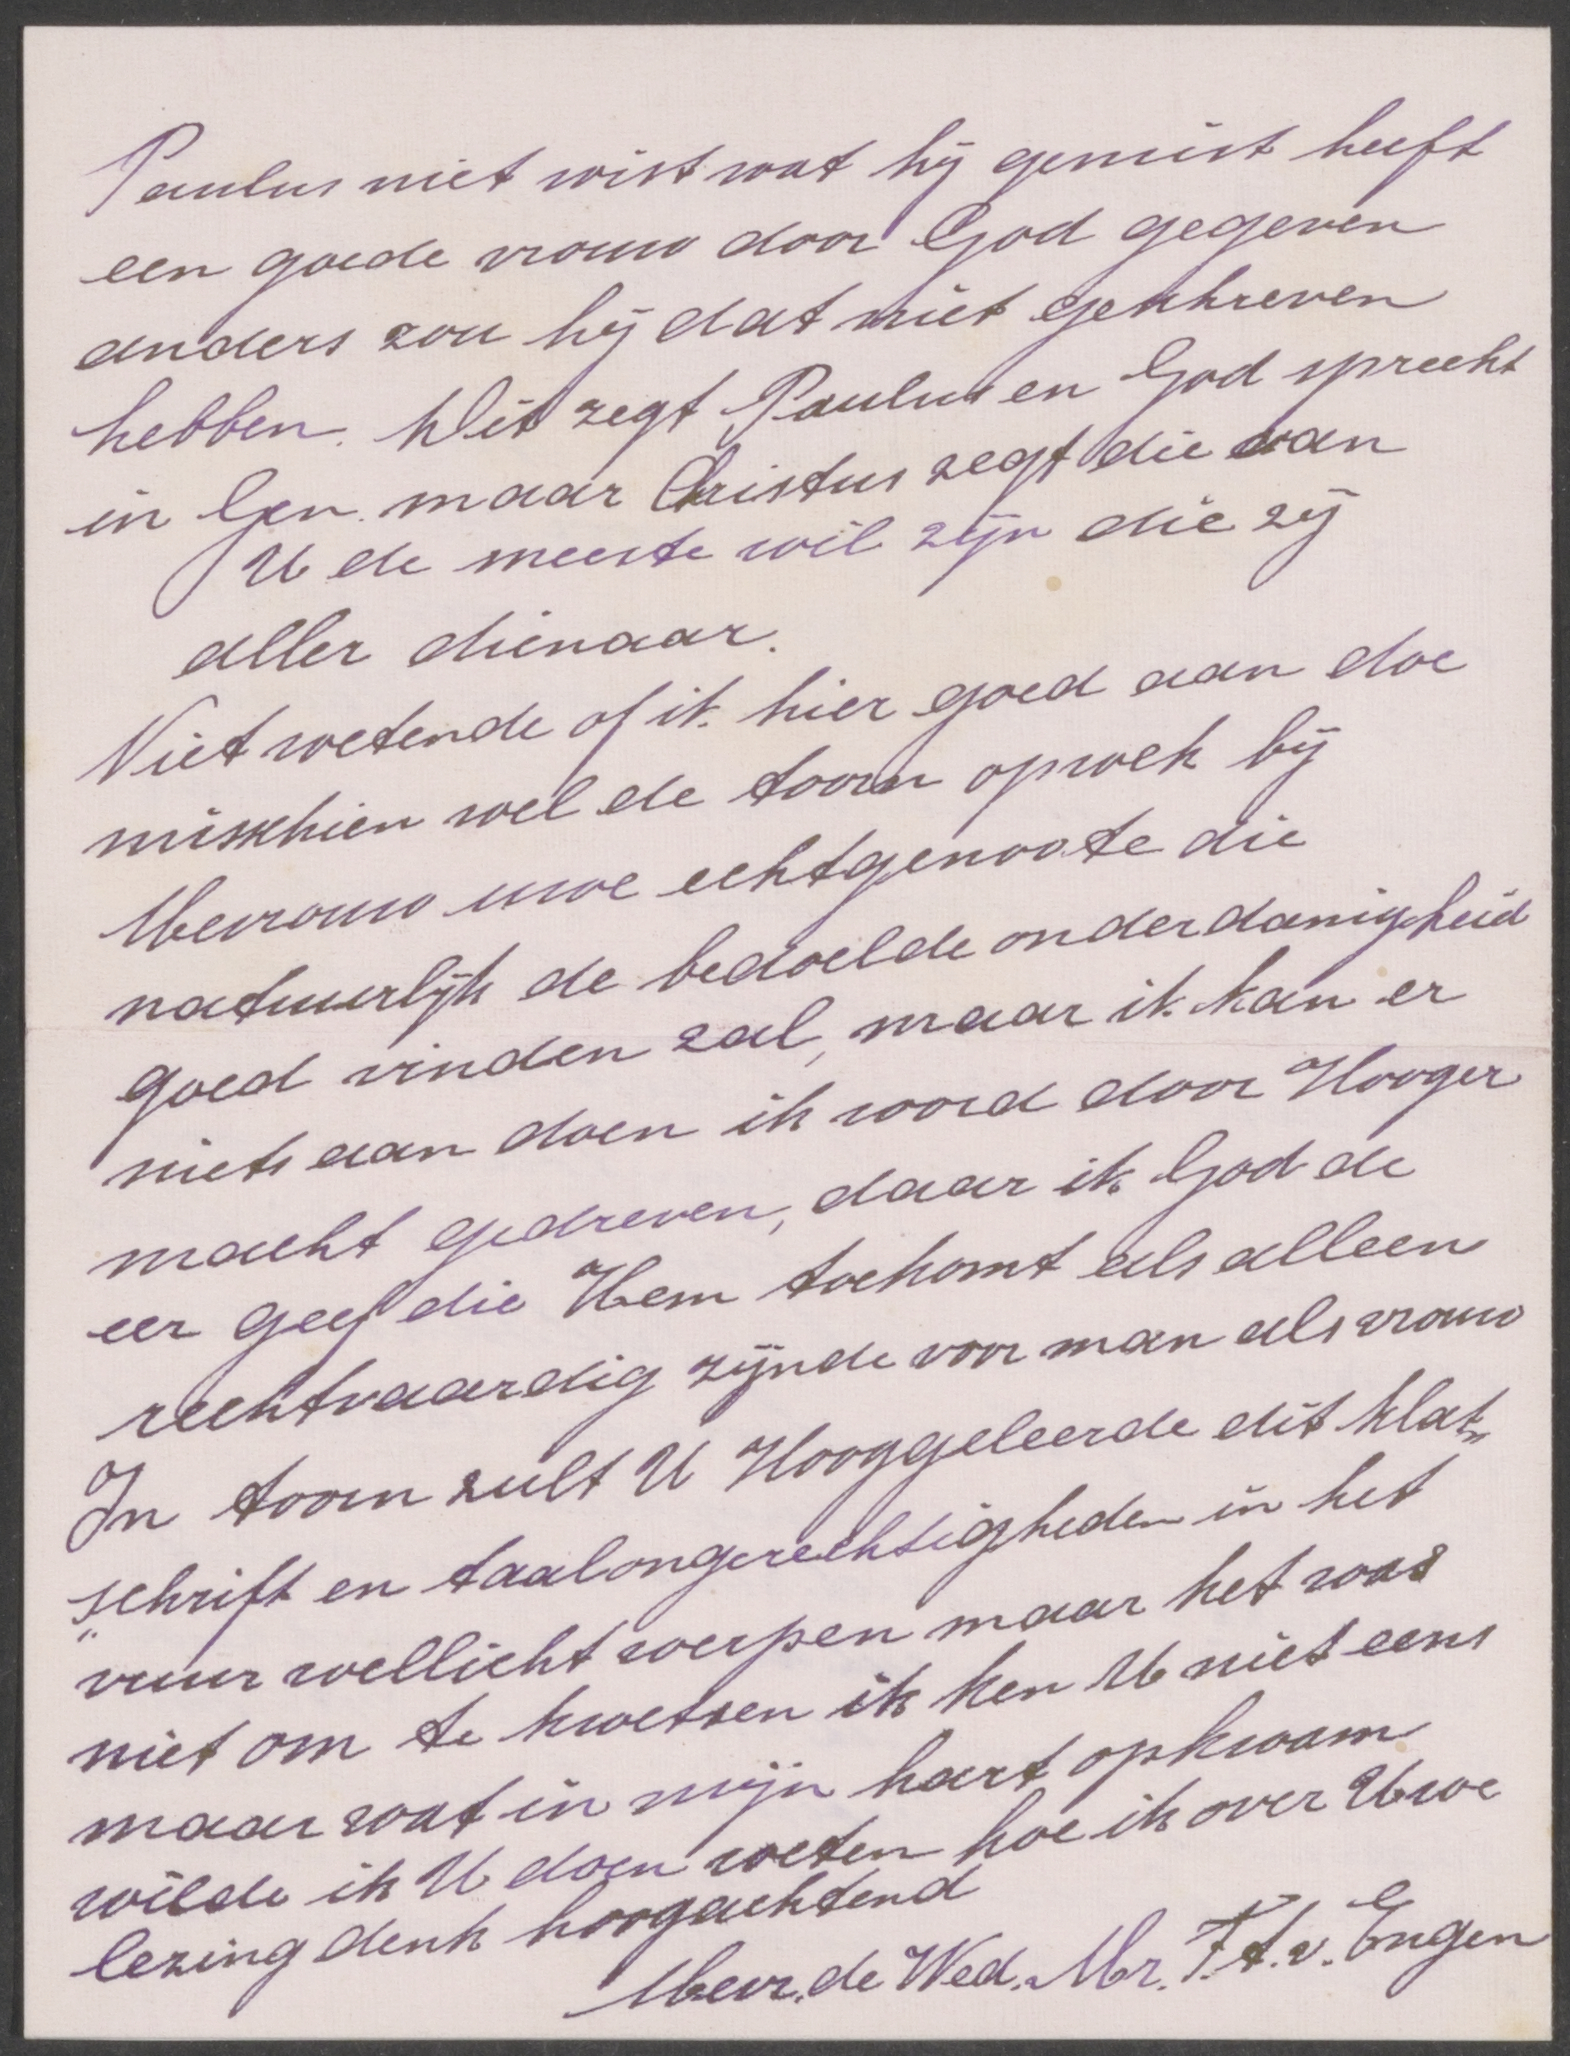 Paulus niet wist wat hij gemist heeft
een goede vrouw door God gegeven
anders zou hij dat niet geschreven
hebben. Dit zegt Paulus en God spreekt
in Gen. maar Christus zegt die van
U de meeste wil zijn die zij
aller dienaar.
Niet wetende of ik hier goed aan doe
misschien wel de toorn opwek bij
Mevrouw uwe echtgenoote die
natuurlijk de bedoelde onderdanigheid
goed vinden zal, maar ik kan er
niets aan doen ik word door Hooger
macht gedreven, daar ik God de
eer geef die Hem toekomt als alleen
rechtvaardig zijnde voor man als vrouw
In toorn zult U Hooggeleerde dit klad„
„schrift en taalongerechtigheden in het
vuur wellicht werpen maar het was
niet om te kwetsen ik ken U niet eens
maar wat in mijn hart opkwam
wilde ik U doen weten hoe ik over Uwe
lezing denk hoogachtend
Mevr. de Wed. Mr. F. A. v. Engen